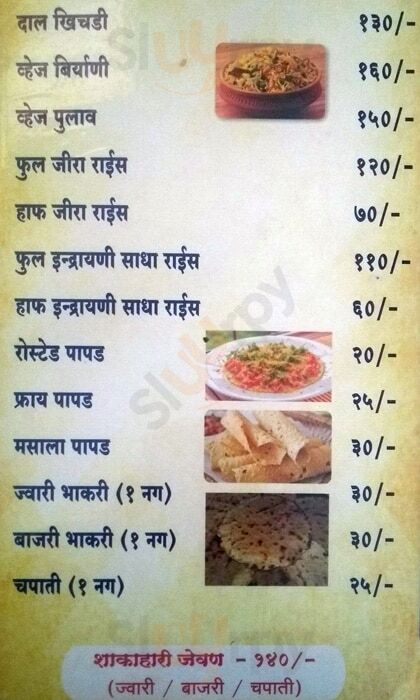 दाल खिचडी १३०/-
व्हेज बिर्याणी १६०/-
व्हेज पुलाव १५०/-
फुल जीरा राईस १२०/-
हाफ जीरा राईस ७०/-
फुल इन्द्रायणी साधा राईस ११०/-
हाफ इन्द्रायणी साधा राईस ६०/-
रोस्टेड पापड २०/-
फ्राय पापड २५/-
मसाला पापड ३०/-
ज्वारी भाकरी (१ नग) ३०/-
बाजरी भाकरी (१ नग) ३०/-
चपाती (१ नग) २५/-
शाकाहारी जेवण - १४०/-
(ज्वारी / बाजरी / चपाती)